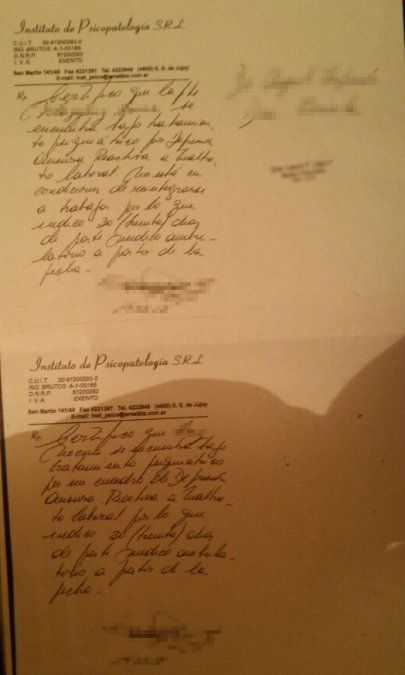 Instituto de Psicopatología S.R.L.
C.U.I.T. 30-61200292-0
ING BRUTOS A-1-05185
D.N.R.P. 61200292
I.V.A. EXENTO
San Martin 141/49 Fax 4231397 Tel. 4223949 (4600) S. S. de Jujuy
E-mail: inst_psico@arnetbiz.com.ar
Certifico que la pte
se
encuentra bajo tratamien-
to psiquiátrico por Depresión
Ansiosa Reactiva a Maltra-
to laboral. No está en
condiciones de reintegrarse
a trabajar por lo que
indico 30 (treinta) días
de parte médico ambu-
latorio a partir de la
fecha.
Instituto de Psicopatología S.R.L.
C.U.I.T. 30-61200292-0
ING BRUTOS A-1-05185
D.N.R.P. 61200292
I.V.A. EXENTO
San Martin 141/49 Fax 4231397 Tel. 4223949 (4600) S. S. de Jujuy
E-mail: inst_psico@arnetbiz.com.ar
Certifico que
se encuentra bajo
tratamiento psiquiátrico
por un cuadro de Depresión
Ansiosa Reactiva a Maltra-
to laboral por lo que
indico 30 (treinta) días
de parte médico ambula-
torio a partir de la
fecha.